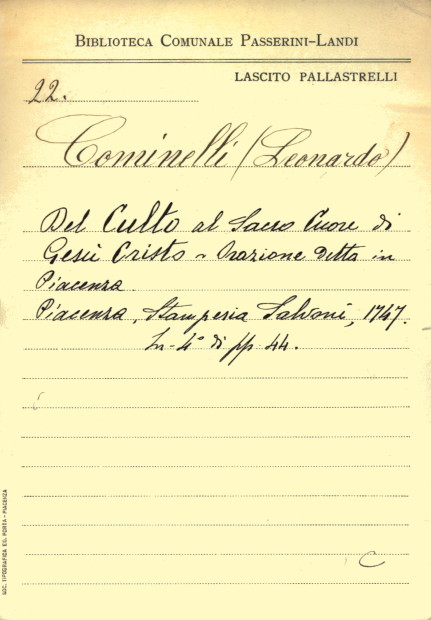 BIBLIOTECA COMUNALE PASSERINI-LANDI
LASCITO PALLASTRELLI
22.
Cominelli (Leonardo)
Del Culto al Sacro Cuore di
Gesù Cristo ~ Orazione detta in
Piacenza.
Piacenza, Stamperia Salvoni, 1747.
In-4° di pp 44.
C
SOC. TIPOGRAFICA ED. PORTA - PIACENZA